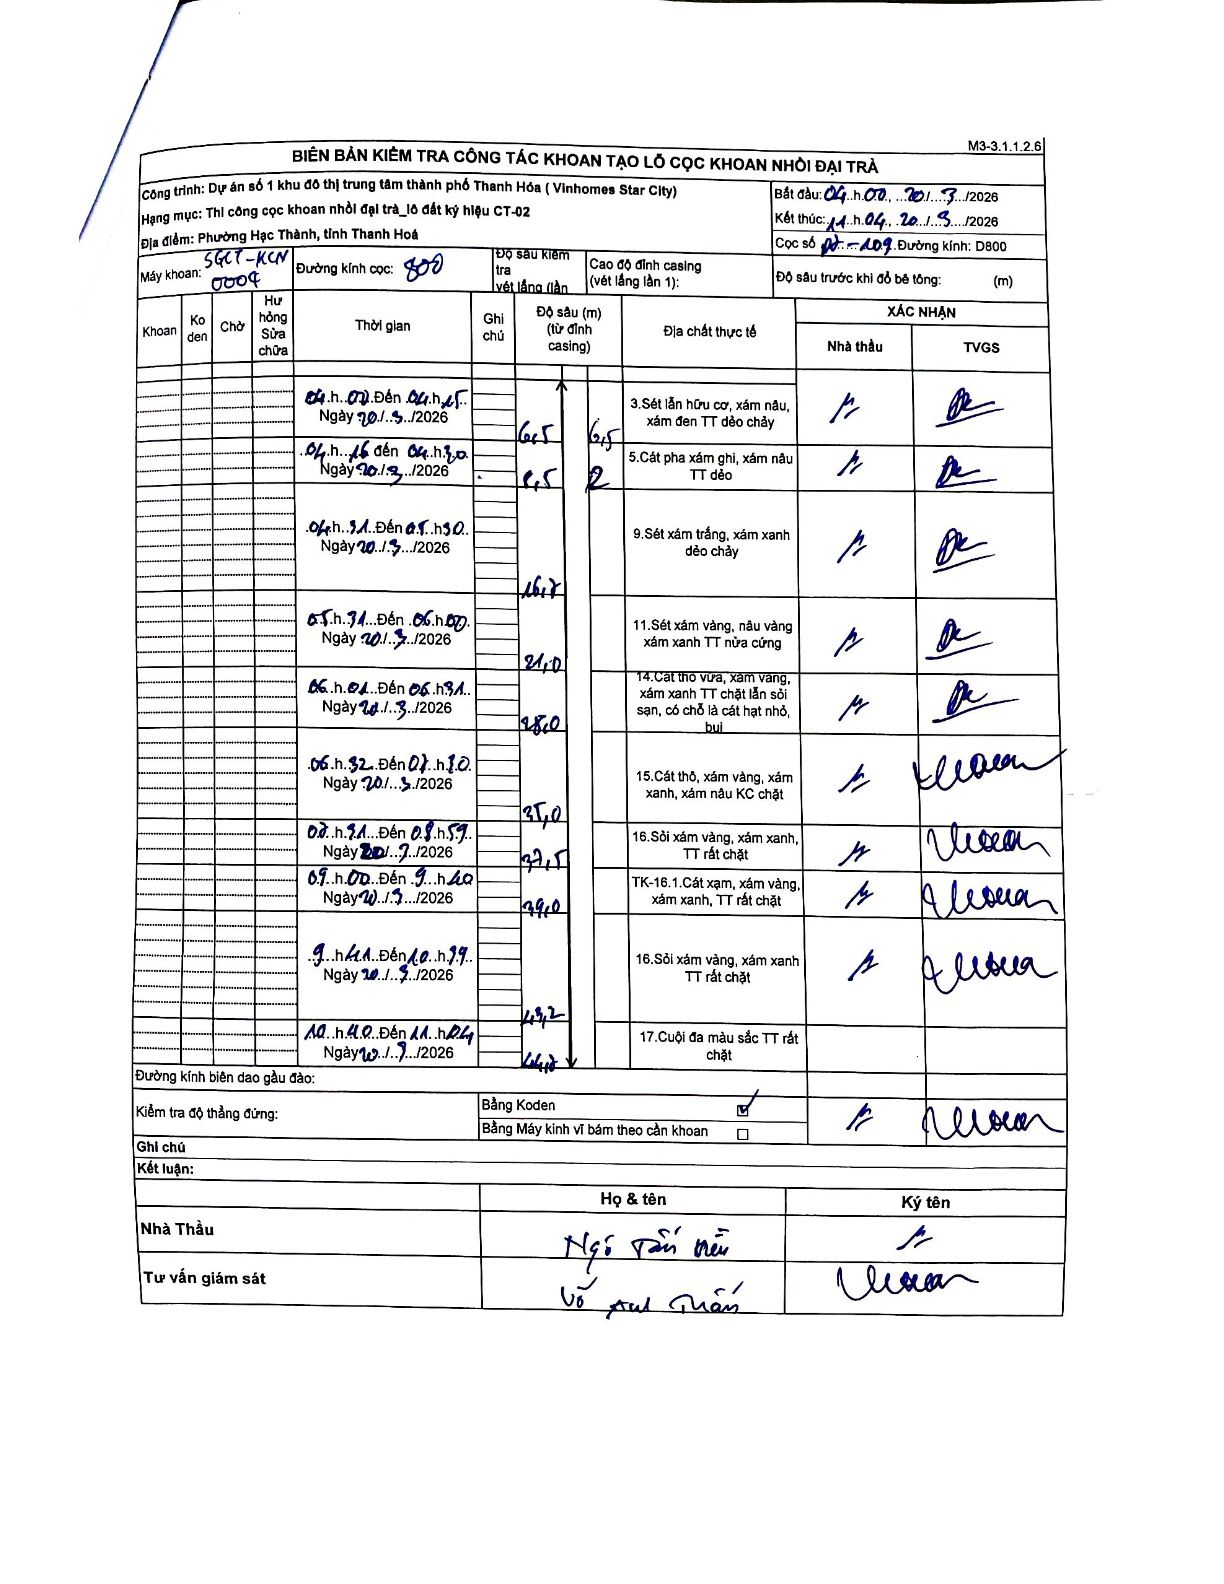 M3-3.1.1.2.6
BIÊN BẢN KIỂM TRA CÔNG TÁC KHOAN TẠO LỖ CỌC KHOAN NHỒI ĐẠI TRÀ
Công trình: Dự án số 1 khu đô thị trung tâm thành phố Thanh Hóa ( Vinhomes Star City)
Hạng mục: Thi công cọc khoan nhồi đại trà_lô đất ký hiệu CT-02
Địa điểm: Phường Hạc Thành, tỉnh Thanh Hoá
Bắt đầu: 04..h.00., ...20./...3.../2026
Kết thúc: 11.h.04., .20../..3.../2026
Cọc số -109. Đường kính: D800
Máy khoan: SGCT-KCN 0009
Đường kính cọc: 800
Độ sâu kiểm tra
vét lắng (lần
Cao độ đỉnh casing
(vét lắng lần 1):
Độ sâu trước khi đổ bê tông: (m)
Khoan
Ko đen
Chờ
Hư hỏng Sửa chữa
Thời gian
Ghi chú
Độ sâu (m) (từ đỉnh casing)
Địa chất thực tế
XÁC NHẬN
Nhà thầu
TVGS
04.h..00.Đến .04.h.15..
Ngày 20./..3.../2026
6,5
6,5
3.Sét lẫn hữu cơ, xám nâu, xám đen TT dẻo chảy
.04.h...16 đến 04..h.30.
Ngày 20../..3.../2026
8,5
2
5.Cát pha xám ghi, xám nâu TT dẻo
.04.h..31..Đến 05..h30..
Ngày 20../..3.../2026
16,7
9.Sét xám trắng, xám xanh dẻo chảy
05.h.31...Đến .06.h00.
Ngày 20./..3.../2026
21,0
11.Sét xám vàng, nâu vàng xám xanh TT nửa cứng
06..h.01...Đến 06..h31..
Ngày 20./...3.../2026
28,0
14.Cát thô vừa, xám vàng, xám xanh TT chặt lẫn sỏi sạn, có chỗ là cát hạt nhỏ, bụi
.06.h.32..Đến 07..h.30.
Ngày 20../...3../2026
35,0
15.Cát thô, xám vàng, xám xanh, xám nâu KC chặt
07..h.31...Đến 08.h59..
Ngày 20../..3.../2026
37,5
16.Sỏi xám vàng, xám xanh, TT rất chặt
09..h.00..Đến .9...h40
Ngày 20../.3.../2026
39,0
TK-16.1.Cát xạm, xám vàng, xám xanh, TT rất chặt
.9...h41..Đến 10...h.39..
Ngày 20../..3.../2026
43,2
16.Sỏi xám vàng, xám xanh TT rất chặt
10..h.40..Đến 11..h04
Ngày 20../..3.../2026
44,7
17.Cuội đa màu sắc TT rất chặt
Đường kính biên dao gầu đào:
Kiểm tra độ thẳng đứng:
Bằng Koden
Bằng Máy kinh vĩ bám theo cần khoan
Ghi chú
Kết luận:
Họ & tên
Ký tên
Nhà Thầu
Ngô Tấn
Tư vấn giám sát
Võ Anh Tuấn